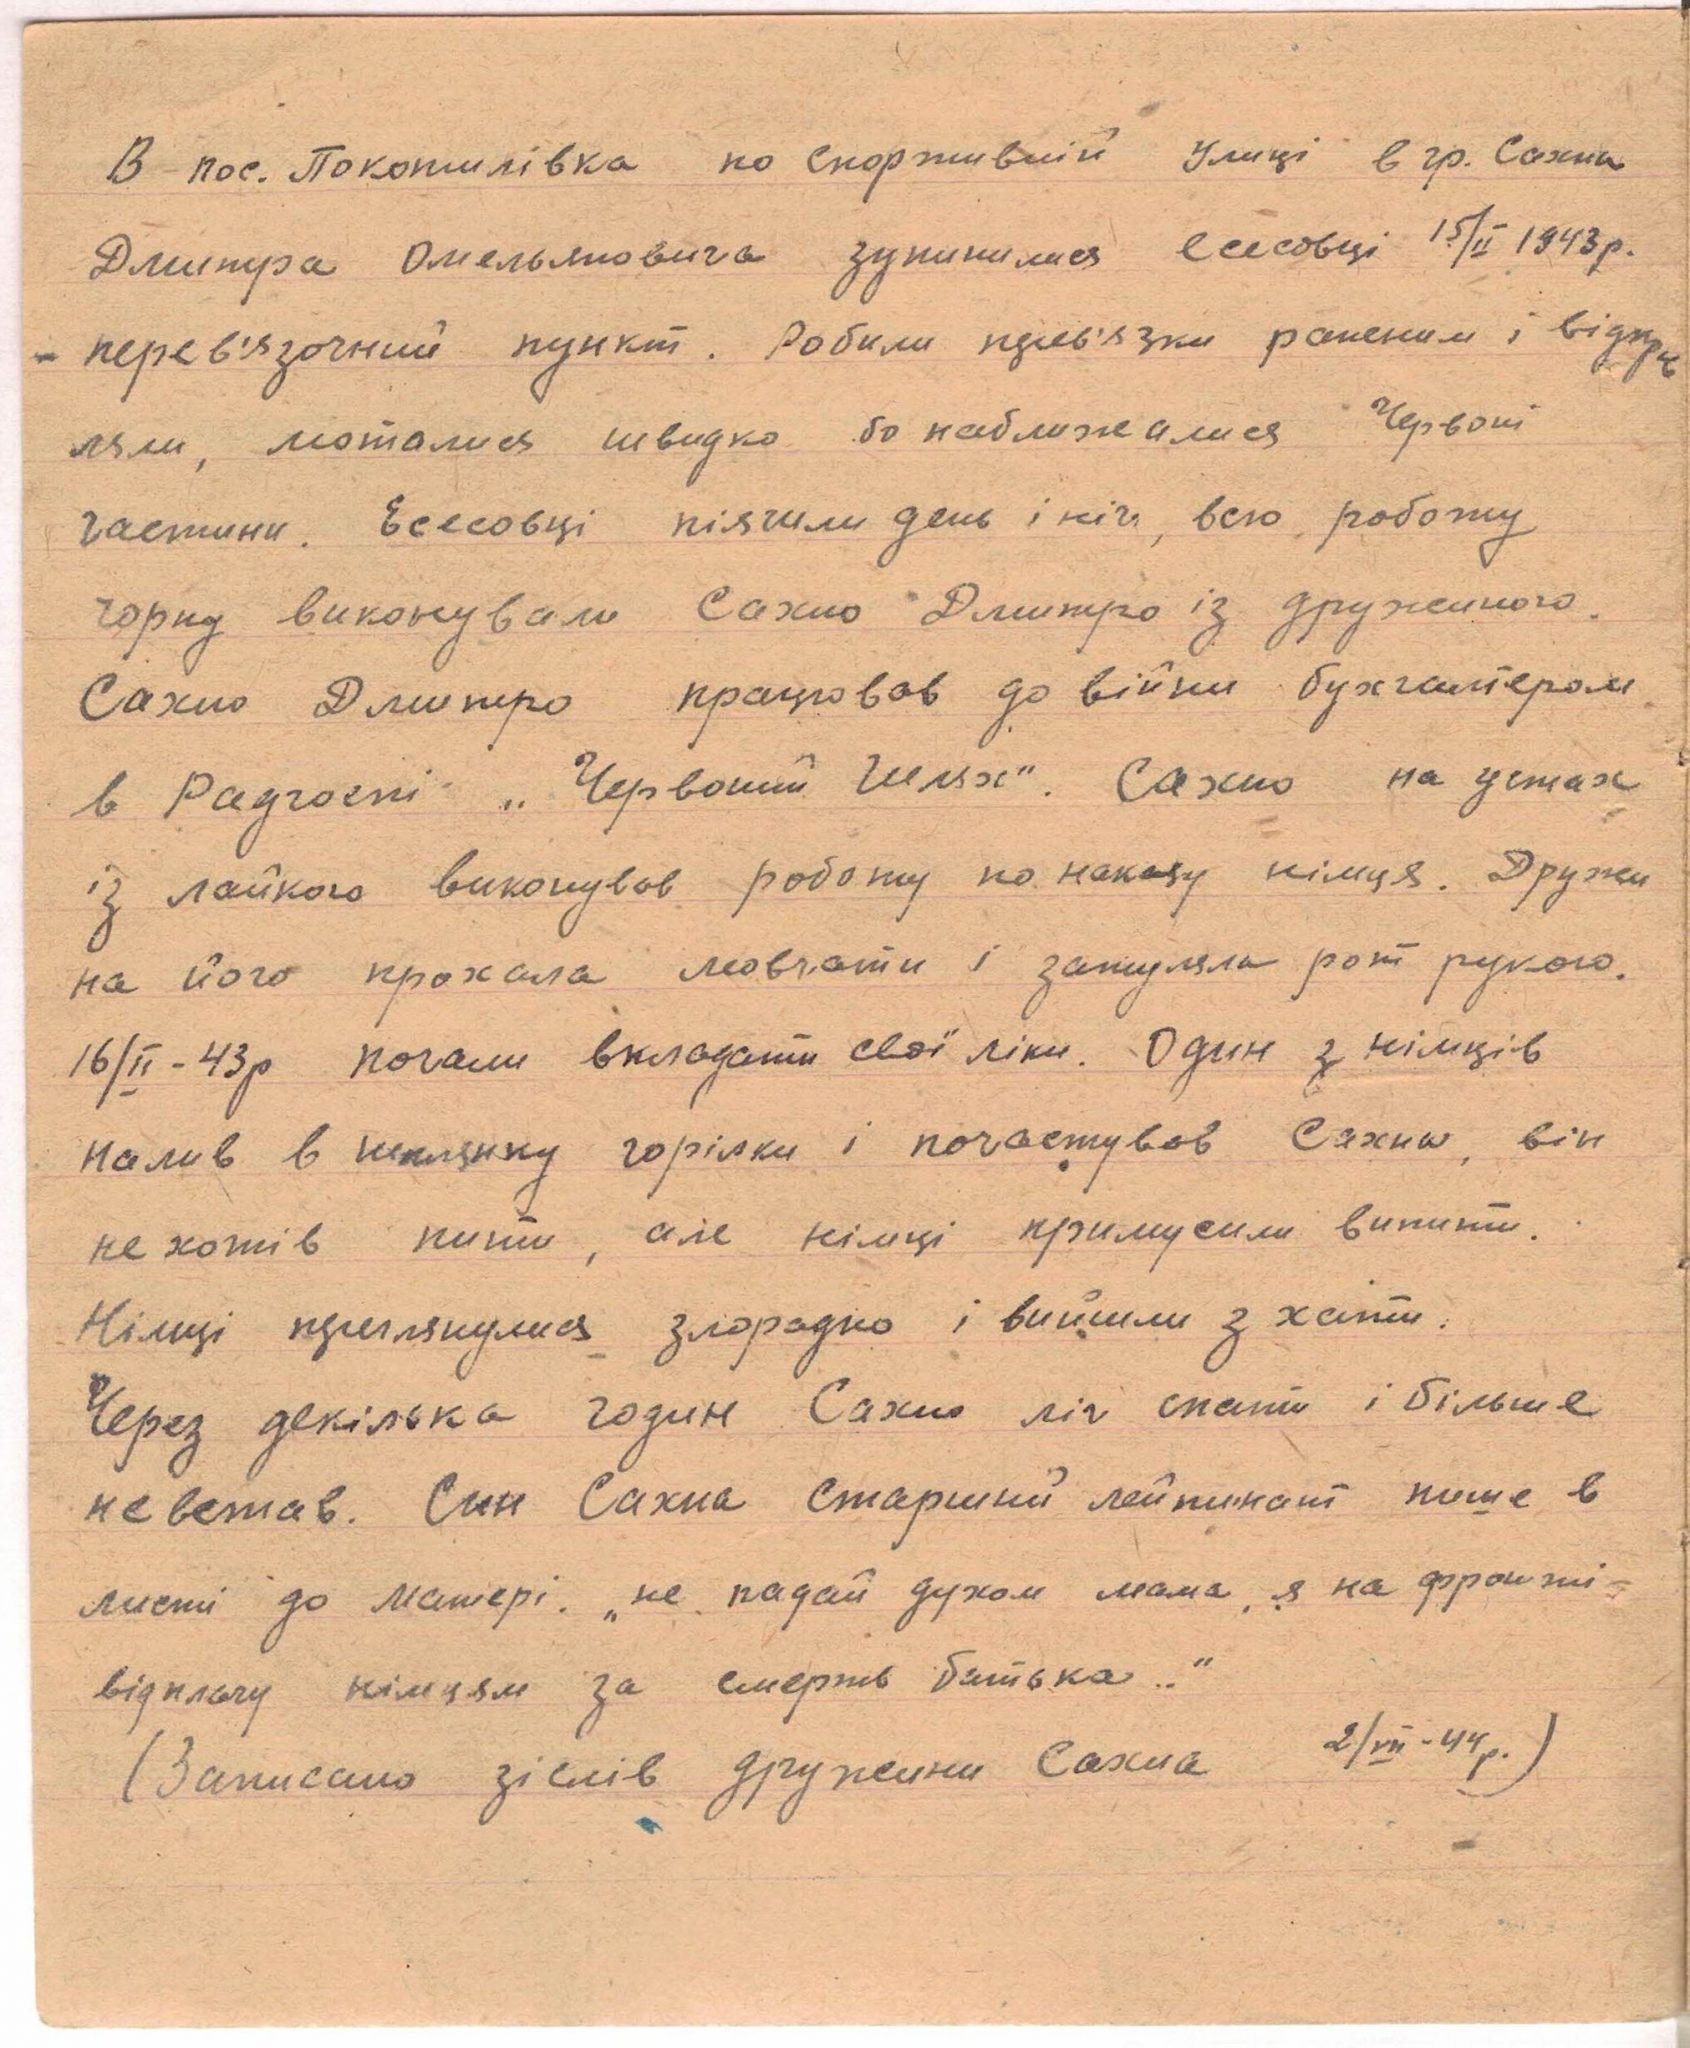 В пос. Покотилівка по Спортивній Улиці в гр. Сахна
Дмитра Омельяновича зупинилися есесовці 15/II 1943р.
- перев'язочний пункт. Робили перев'язки раненим і відпра
ляли, моталися швидко бо наближалися Червоні
частини. Есесовці піячили день і ніч, всю роботу
чорну виконували Сахно Дмитро із дружиною.
Сахно Дмитро працював до війни бухгалтером
в Радгоспі „Червоний Шлях". Сахно на устах
із лайкою виконував роботу по наказу німця. Дружи
на його прохала мовчати і затуляла рот рукою.
16/II - 43р почали вкладати свої ліки. Один з німців
налив в шклянку горілки і почастував Сахна, він
не хотів пити, але німці примусили випити.
Німці переглянулися злорадно і вийшли з хати.
Через декілька годин Сахно ліг спати і більше
не встав. Син Сахна старший лейтинант пише в
листі до матері. „не падай духом мама, я на фронті -
відплачу німцям за смерть батька.."
(Записано зіслів дружини Сахна 2/VII - 44р.)